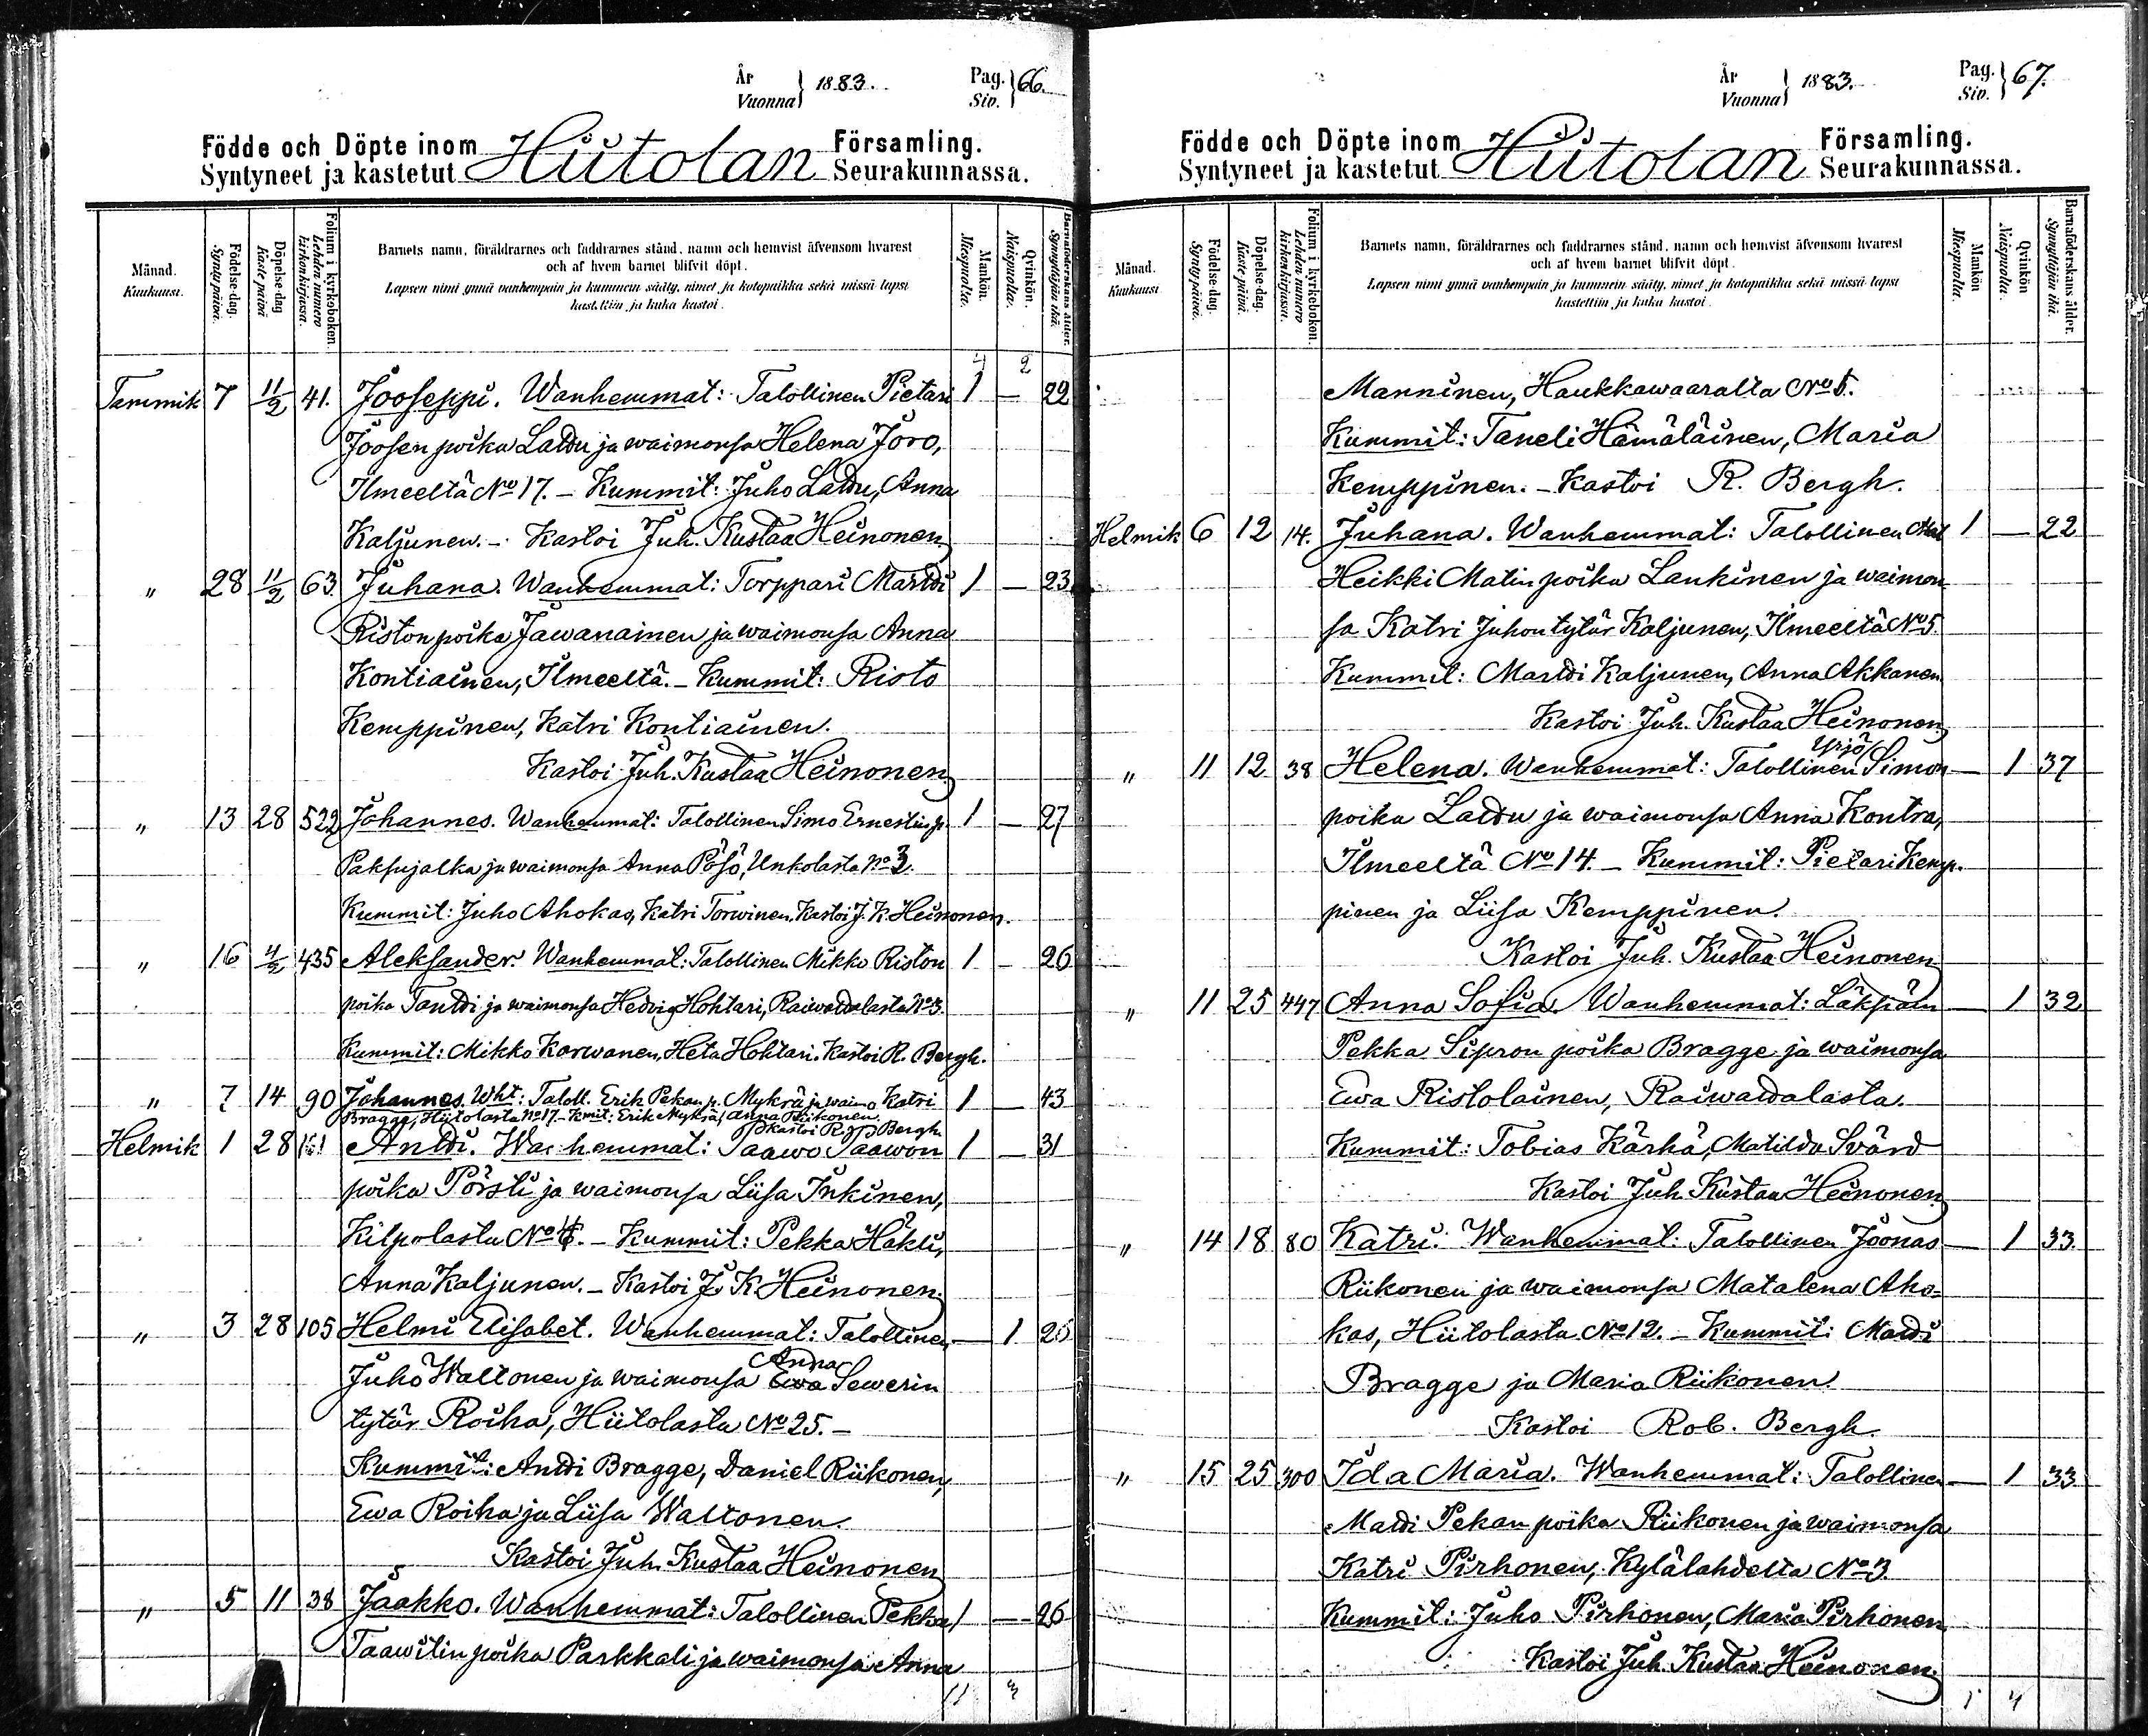 År
Vuonna } 1883.
Pag.
Siv. } 66.
Födde och Döpte inom Hiitolan Församling.
Syntyneet ja kastetut Seurakunnassa.
Månad.
Kuukausi.
Födelse-dag.
Synty päivä.
Döpelse-dag
Kaste päivä
Folium i kyrkoboken.
Lehden numero
kirkonkirjassa.
Barnets namn, föräldrarnes och faddrarnes stånd, namn och hemvist äfvensom hvarest
och af hvem barnet blifvit döpt.
Lapsen nimi ynnä vanhempain ja kummein sääty, nimet ja kotopaikka sekä missä lapsi
kastettiin ja kuka kastoi.
Mankön.
Miespuolta.
Qvinkön.
Naispuolta.
Barnaföderskans ålder.
Synnyttäjän ikä.
4 2
Tammik 7 11/2 41. Jooseppi. Wanhemmat: Talollinen Pietari 1 — 22
Joosen poika Lattu ja waimonsa Helena Joro,
Ilmeeltä No 17. — Kummit: Juho Lattu, Anna
Kaljunen. — Kastoi Juh. Kustaa Heinonen
" 28 11/2 63. Juhana. Wanhemmat: Torppari Martti 1 — 23
Riston poika Jawanainen ja waimonsa Anna
Kontiainen, Ilmeeltä. — Kummit: Risto
Kemppinen, Katri Kontiainen.
Kastoi Juh. Kustaa Heinonen
" 13 28 522 Johannes. Wanhemmat: Talollinen Simo Ernestin p. 1 — 27
Paksujalka ja waimonsa Anna Pösö, Unkolasta No 3.
Kummit: Juho Ahokas, Katri Torwinen. Kastoi J. K. Heinonen.
" 16 4/2 435 Aleksander. Wanhemmat: Talollinen Mikko Riston 1 — 26
poika Tantti ja waimonsa Hedvig Hohtari, Raiwattalasta No 3.
Kummit: Mikko Karwanen, Heta Hohtari. Kastoi R. Bergh.
" 7 14 90 Johannes. Wht: Taloll. Erik Pekan p. Mykrä ja waimo Katri 1 — 43
Bragge, Hiitolasta No 17. — Kmit: Erik Mykrä, Anna Riikonen.
Kastoi R. Bergh.
Helmik 1 28 161 Antti. Wanhemmat: Paawo Paawon 1 — 31
poika Pörsti ja waimonsa Liisa Inkinen,
Kilpolasta No 4. — Kummit: Pekka Häkli,
Anna Kaljunen. — Kastoi J. K. Heinonen.
" 3 28 105 Helmi Elisabet. Wanhemmat: Talollinen — 1 26
Anna
Juho Waltonen ja waimonsa Ewa Sewerin
tytär Roiha, Hiitolasta No 25. —
Kummit: Antti Bragge, Daniel Riikonen,
Ewa Roiha ja Liisa Waltonen.
Kastoi Juh. Kustaa Heinonen
" 5 11 38 Jaakko. Wanhemmat: Talollinen Pekka 1 — 26
Taawitin poika Parkkali ja waimonsa Anna
11 3
År
Vuonna } 1883.
Pag.
Siv. } 67.
Födde och Döpte inom Hiitolan Församling.
Syntyneet ja kastetut Seurakunnassa.
Månad.
Kuukausi
Födelse-dag.
Synty päivä.
Döpelse-dag.
Kaste päivä.
Folium i kyrkoboken.
Lehden numero
kirkonkirjassa.
Barnets namn, föräldrarnes och faddrarnes stånd, namn och hemvist äfvensom hvarest
och af hvem barnet blifvit döpt.
Lapsen nimi ynnä vanhempain ja kummein sääty, nimet ja kotopaikka sekä missä lapsi
kastettiin ja kuka kastoi.
Mankön
Miespuolta.
Qvinkön
Naispuolta.
Barnaföderskans ålder.
Synnyttäjän ikä.
Manninen, Haukkawaaralta No 5.
Kummit: Taneli Hämäläinen, Maria
Kemppinen. — Kastoi R. Bergh.
Helmik 6 12 14. Juhana. Wanhemmat: Talollinen 1 — 22
Heikki Matin poika Lankinen ja waimon
sa Katri Juhon tytär Kaljunen, Ilmeeltä No 5.
Kummit: Martti Kaljunen, Anna Akkanen
Kastoi Juh. Kustaa Heinonen
Yrjö
" 11 12 38 Helena. Wanhemmat: Talollinen Simon — 1 37
poika Lattu ja waimonsa Anna Kontra,
Ilmeeltä No 14. — Kummit: Pietari Kemp-
pinen ja Liisa Kemppinen.
Kastoi Juh. Kustaa Heinonen
" 11 25 447 Anna Sofia. Wanhemmat: Läksiäin — 1 32
Pekka Sipron poika Bragge ja waimonsa
Ewa Ristolainen, Raiwattalasta.
Kummit: Tobias Kärhä, Matilda Svärd
Kastoi Juh. Kustaa Heinonen
" 14 18 80 Katri. Wanhemmat: Talollinen Joonas — 1 33.
Riikonen ja waimonsa Matalena Aho=
kas, Hiitolasta No 12. — Kummit: Matti
Bragge ja Maria Riikonen.
Kastoi Rob. Bergh.
" 15 25 300 Ida Maria. Wanhemmat: Talollinen — 1 33.
Matti Pekan poika Riikonen ja waimonsa
Katri Pirhonen, Kylälahdelta No 3.
Kummit: Juho Pirhonen, Maria Pirhonen
Kastoi Juh. Kustaa Heinonen.
1 4